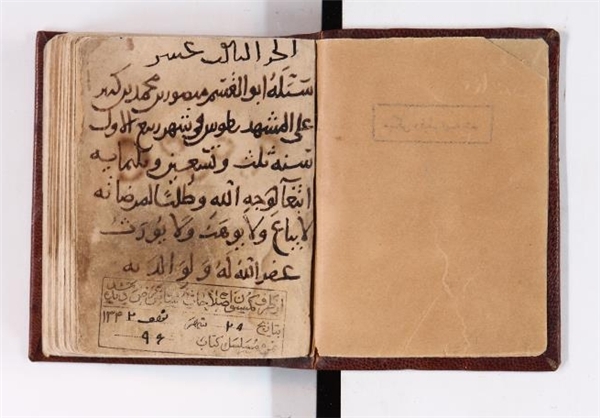 الجزء الثالث عشر
سبله ابو القسم منصور بن محمد بن كثير
على المشهد بطوس في شهر ربيع الاول
سنة ثلث وتسعين وثلثمايه
ابتغا لوجه الله وطلبا لمرضاته
لا يباع ولا يوهب ولا يورث
غفر الله له ولوالديه
از طرف كمسيون
بتاريخ ٢٥ ١٣٤٢
مسلسل كتاب ٩٦